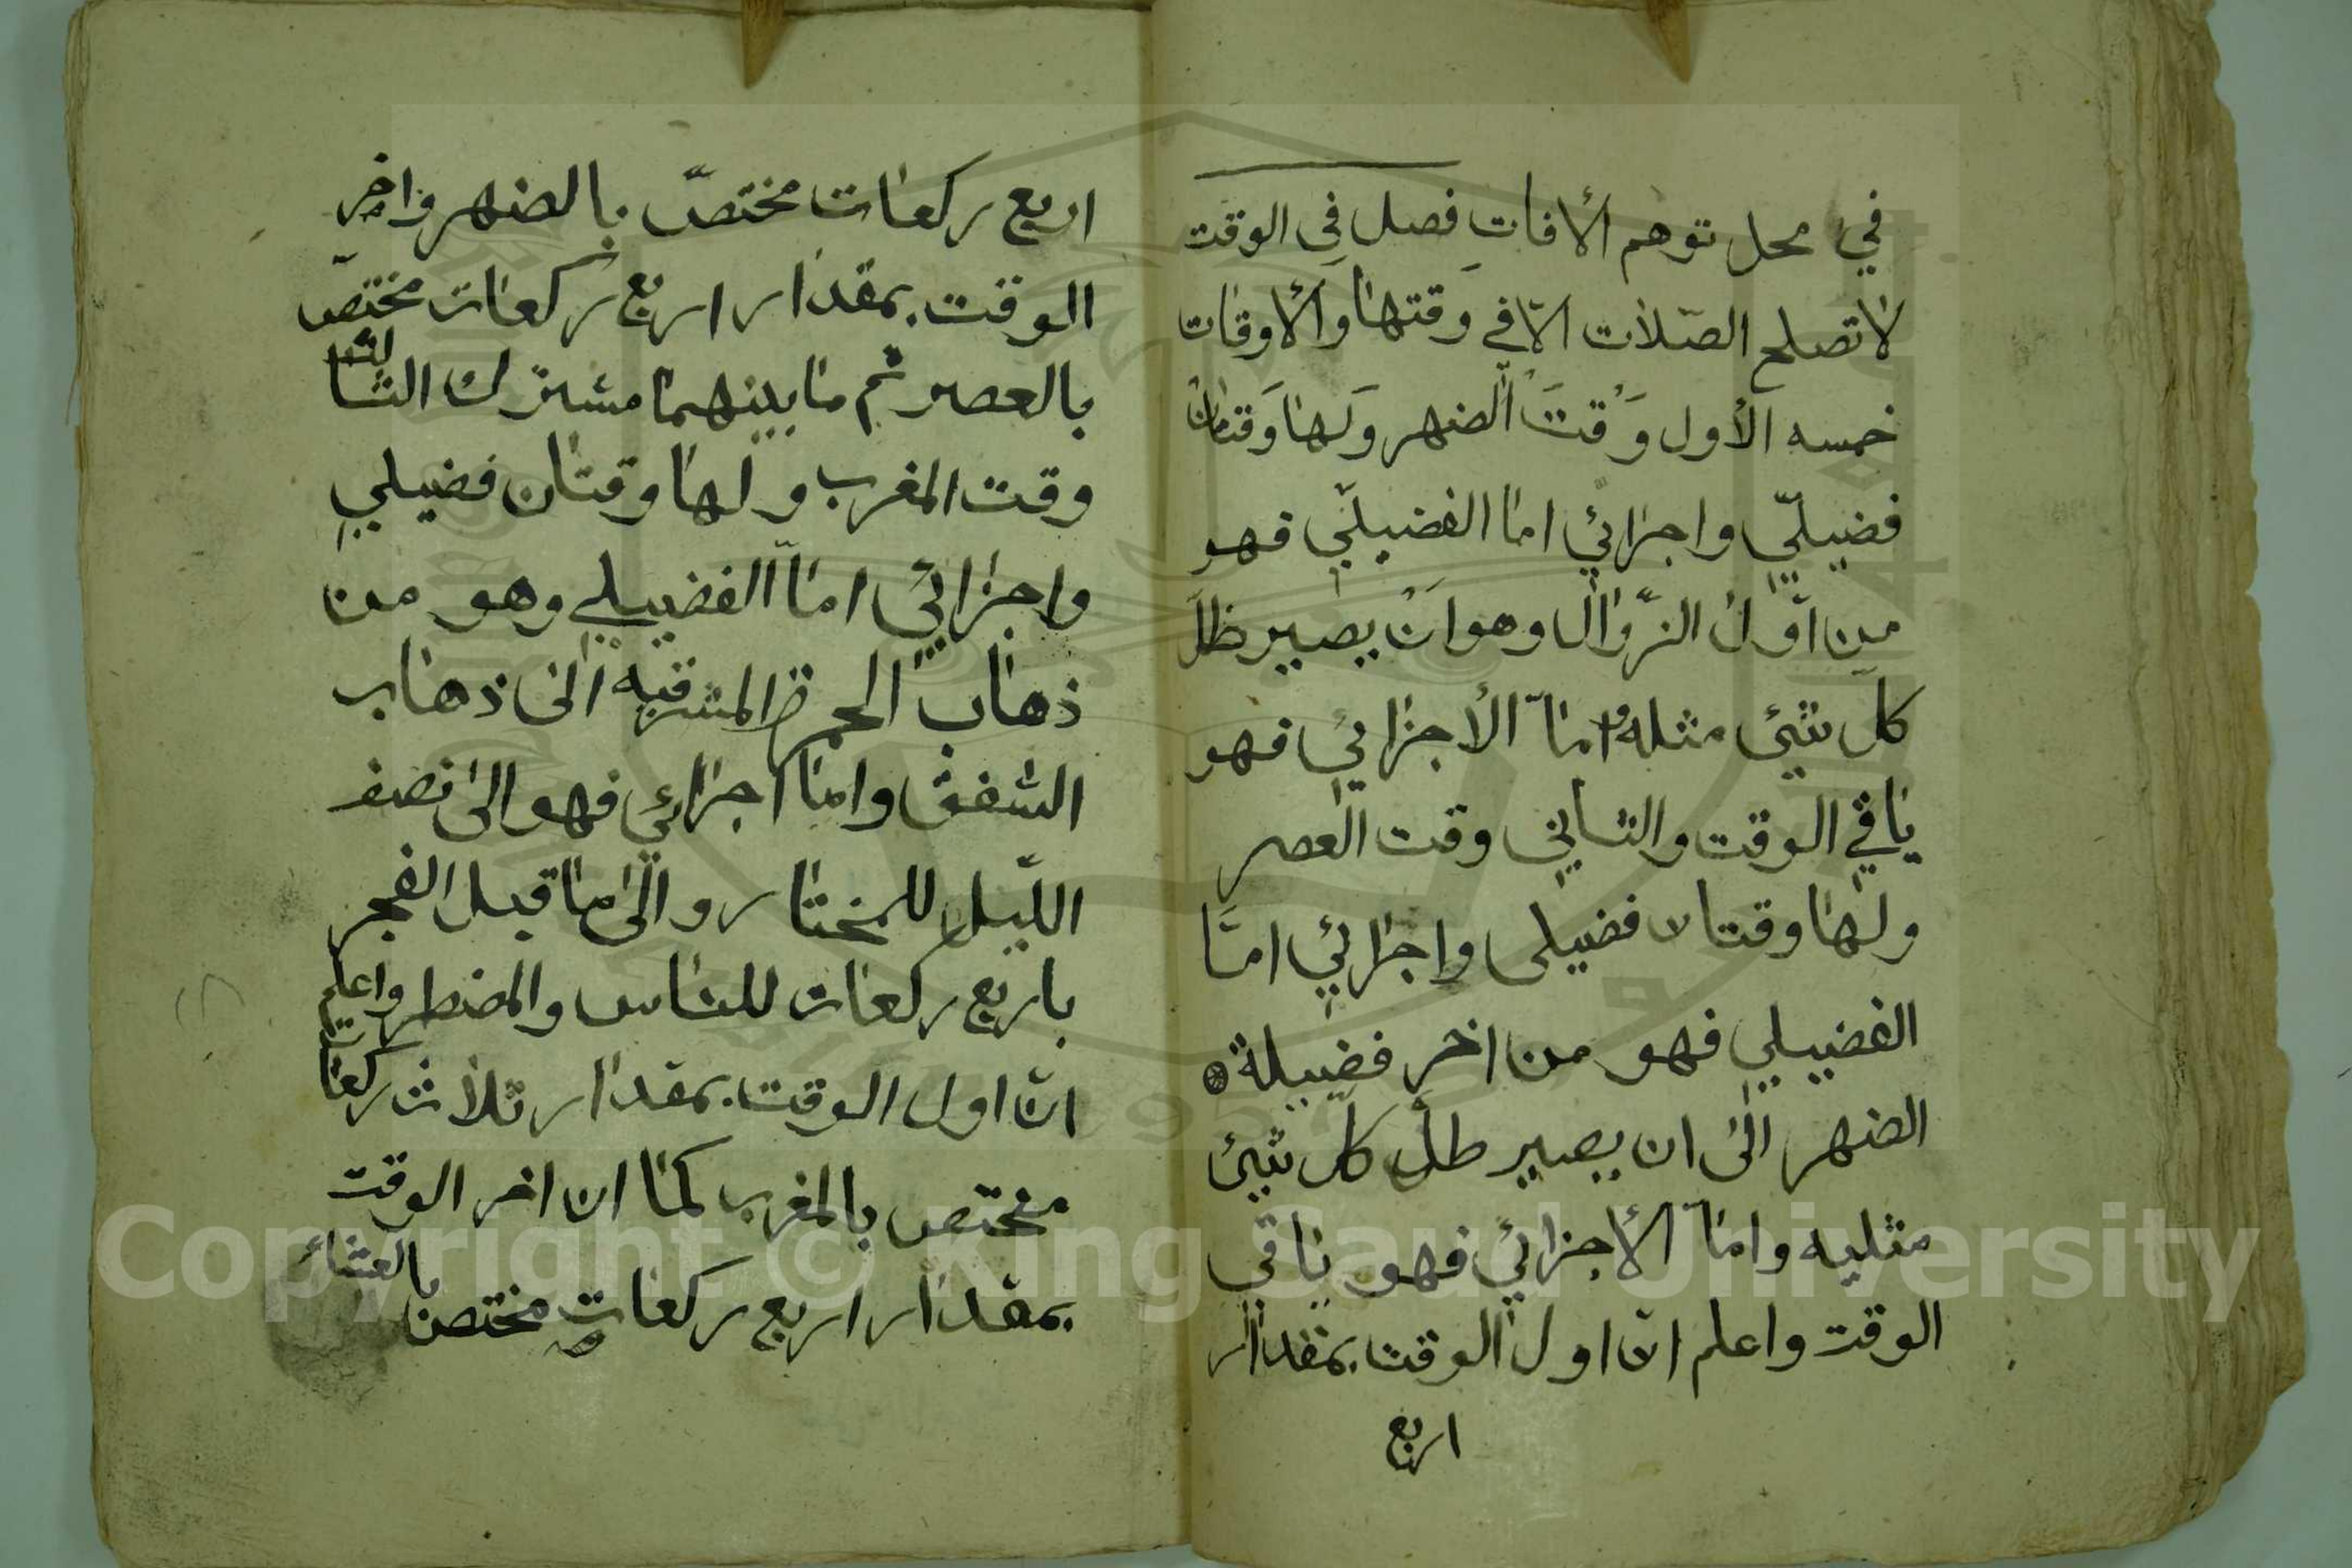 في محل توهم الأفات فصل في الوقت
لا تصلح الصّلاٰت الاّ في وقتها والأوقات
خمسه الأول وَقت الضهر ولها وَقتان
فضيليّ واجزائي اما الفضيليّ فهو
من اوّل الزّوال وهو اَنْ يصير ظلّ
كلّ شيئ مثلهُ امّا الأجزائي فهو
باقي الوقت والثاني وقت العصر
ولها وقتان فضيلى واجزائي امّا
الفضيلي فهو من اخر فضيلة
الضهر الى ان يصير طل كلّ شيئ
مثليه وامّا الأجزائي فهو باقي
الوقت واعلم انّ اول الوقت بمقدار
اربع
اربع ركعات مختصّ بالضهر واخر
الوقت بمقدار اربع ركعات مختصّ
بالعصر ثم ما بينهما مشترك الثالث
وقت المغرب ولها وقتان فضيلي
واجزائي امّا الفضيلي وهو من
ذهاب الحمرة المشرقيه الى ذهاب
الشفق واما اجزائي فهو الى نصف
اللّيل للمختار والى ما قبل الفجر
باربع ركعات للناس والمضطر واعلم
انّ اول الوقت بمقدار ثلاث ركعات
مختص بالمغرب كما ان اخر الوقت
بمقدار اربع ركعات مختص بالعشاء
Copyright © King Saud University